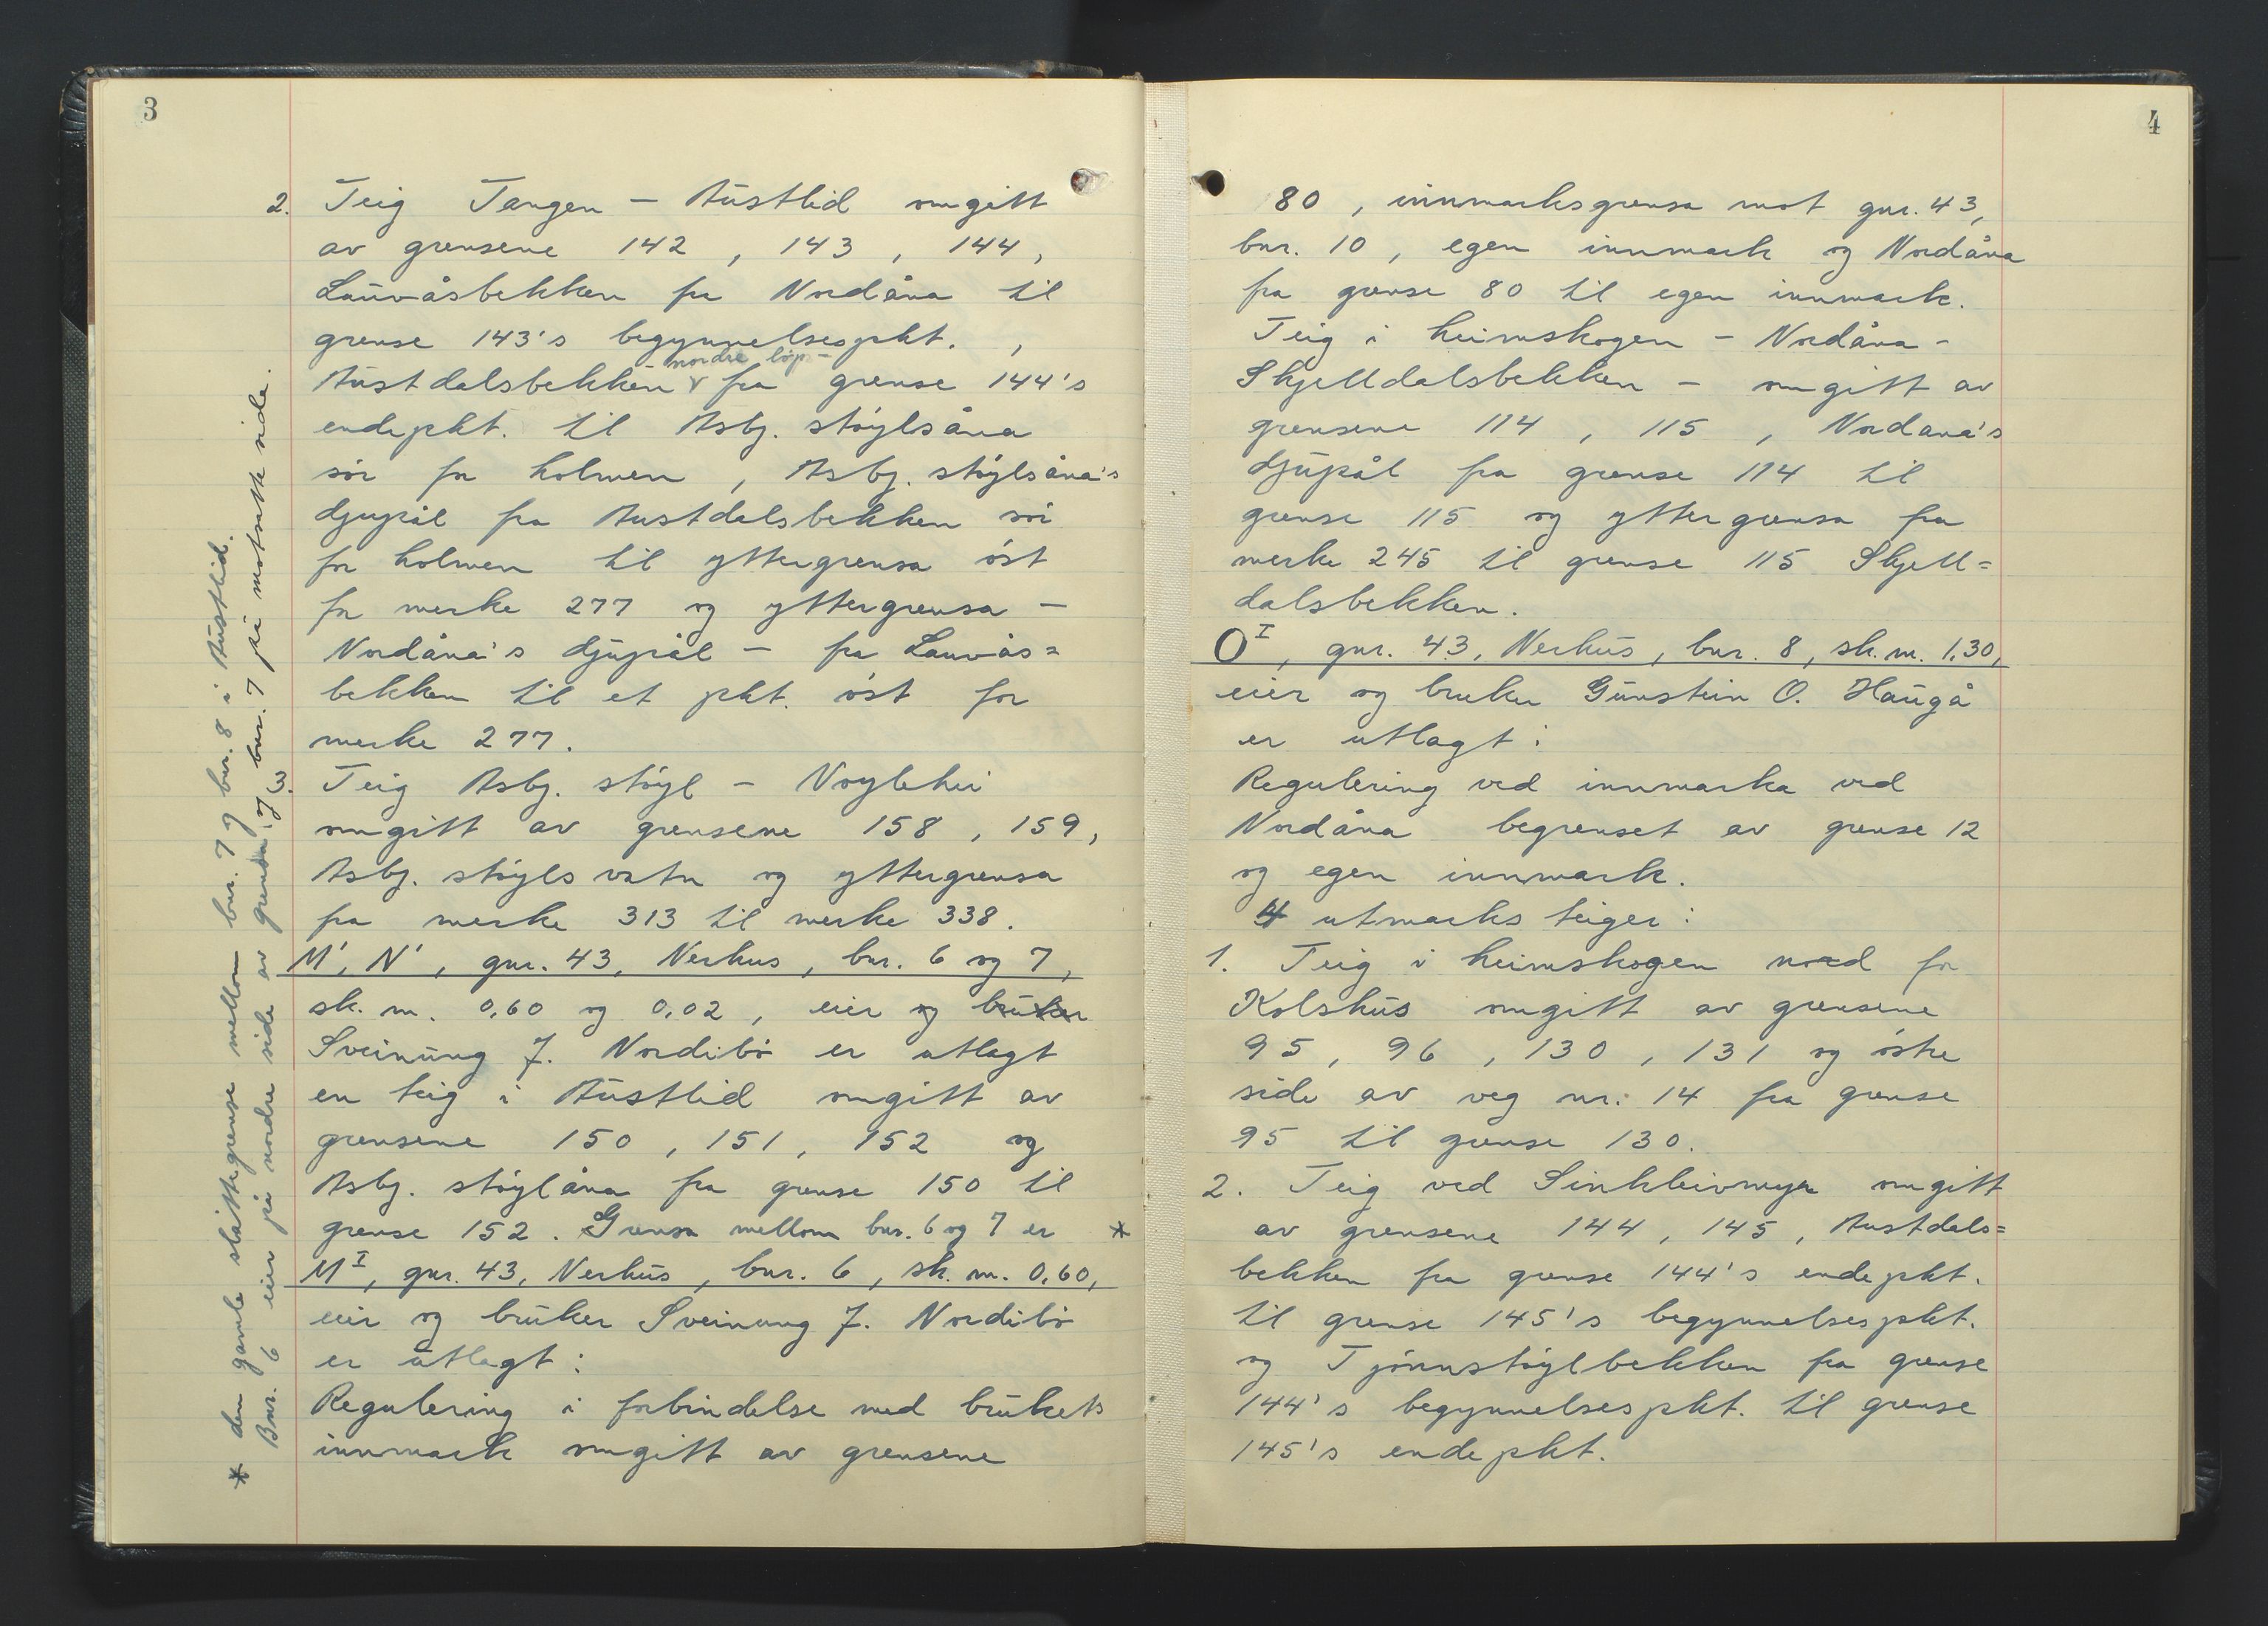 3
2. Teig Tangen - Austlid omgitt
av grensene 142, 143, 144,
Lauvåsbekken fra Nordåna til
grense 143's begynnelsespkt. ,
nordre løp -
Austdalsbekken v fra grense 144's
endepkt. til Asbj. støylsåna
sør for holmen, Asbj. støylsåna's
djupål fra Austdalsbekken sør
for holmen til yttergrensa øst
for merke 277 og yttergrensa -
Nordåna's djupål - fra Lauvås=
bekken til et pkt. øst for
merke 277.
3. Teig Asbj. støyl - 
omgitt av grensene 158, 159,
Asbj. støylsvatn og yttergrensa
fra merke 313 til merke 338.
M', N', gnr. 43, Nerhus, bnr. 6 og 7,
sk. m. 0,60 og 0,02, eier og bruker
Sveinung J. Nordibø er utlagt
en teig i Austlid omgitt av
grensene 150, 151, 152 og
Asbj. støylåna fra grense 150 til
grense 152. Grensa mellom bnr. 6 og 7 er *
M^I, gnr. 43, Nerhus, bnr. 6, sk. m. 0,60,
eier og bruker Sveinung J. Nordibø
er utlagt:
Regulering i forbindelse med brukets
innmark omgitt av grensene
* den gamle slåttegrense mellom bnr. 7 og bnr. 8 i Austlid.
Bnr. 6 eier på nordre side av grensa, og bnr. 7 på motsatt side.
4
80, innmarksgrensa mot gnr. 43,
bnr. 10, egen innmark og Nordåna
fra grense 80 til egen innmark.
Teig i heimskogen - Nordåna -
Skjelldalsbekken - omgitt av
grensene 114, 115, Nordana's
djupål fra grense 114 til
grense 115 og yttergrensa fra
merke 245 til grense 115 Skjell=
dalsbekken.
O^I, gnr. 43, Nerhus, bnr. 8, sk. m. 1,30,
eier og bruker Gunstein O. Haugå
er utlagt:
Regulering ved innmarka ved
Nordåna begrenset av grense 12
og egen innmark.
4 utmarksteiger:
1. Teig i heimskogen nord for
Kolshus omgitt av grensene
95, 96, 130, 131 og østre
side av veg nr. 14 fra grense
95 til grense 130.
2. Teig ved Sinkleivmyr omgitt
av grensene 144, 145, Austdals=
bekken fra grense 144's endepkt.
til grense 145's begynnelsespkt.
og Tjønnstøylbekken fra grense
144's begynnelsespkt. til grense
145's endepkt.